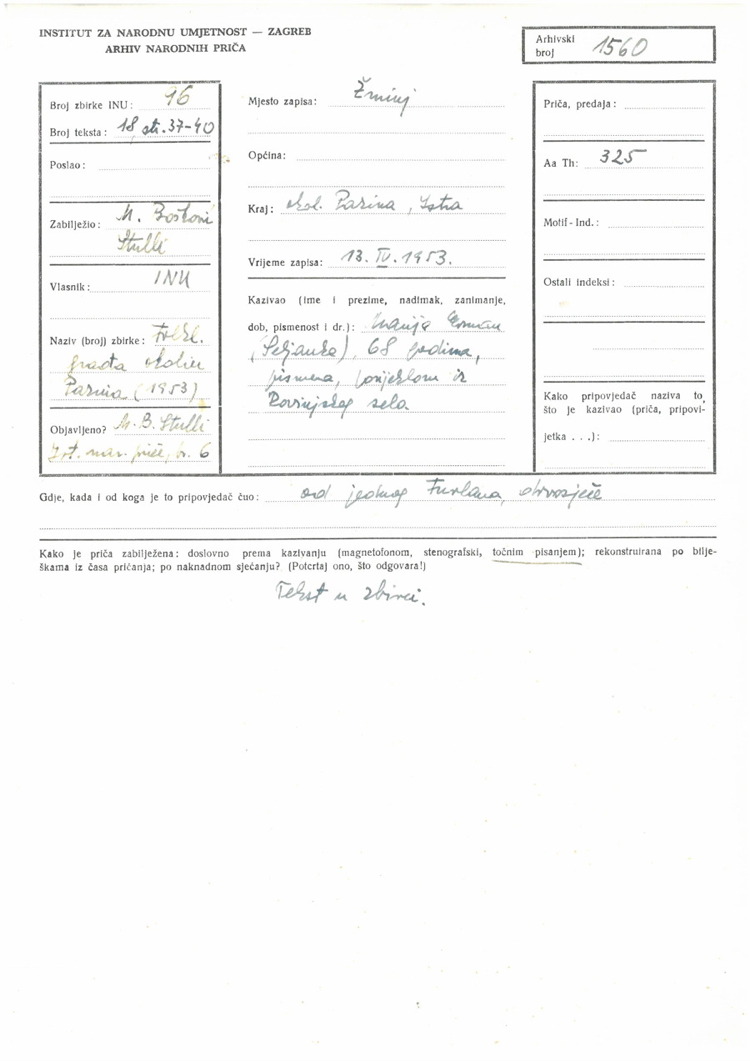 INSTITUT ZA NARODNU UMJETNOST — ZAGREB
ARHIV NARODNIH PRIČA
Arhivski broj 1560
Broj zbirke INU: 16
Broj teksta: 18, str. 37-40
Poslao:
Zabilježio: M. Bošković
Stulli
Vlasnik: INU
Naziv (broj) zbirke: Folkl.
građa okolice
Pazina (1953)
Objavljeno? M. B. Stulli
Ist. nar. priče, br. 6
Mjesto zapisa: Žminj
Općina:
Kraj: okol. Pazina, Istra
Vrijeme zapisa: 13. IV. 1953.
Kazivao (ime i prezime, nadimak, zanimanje,
dob, pismenost i dr.): Marija
(Seljanka), 68 godina,
pismena, porijeklom iz
Rovinjskog sela
Priča, predaja:
Aa Th: 325
Motif-Ind.:
Ostali indeksi:
Kako pripovjedač naziva to,
što je kazivao (priča, pripovi-
jetka . . .):
Gdje, kada i od koga je to pripovjedač čuo: od jednog Furlana, drvosječe
Kako je priča zabilježena: doslovno prema kazivanju (magnetofonom, stenografski, točnim pisanjem); rekonstruirana po bilje-
škama iz časa pričanja; po naknadnom sjećanju? (Potcrtaj ono, što odgovara!)
Tekst u zbirci.